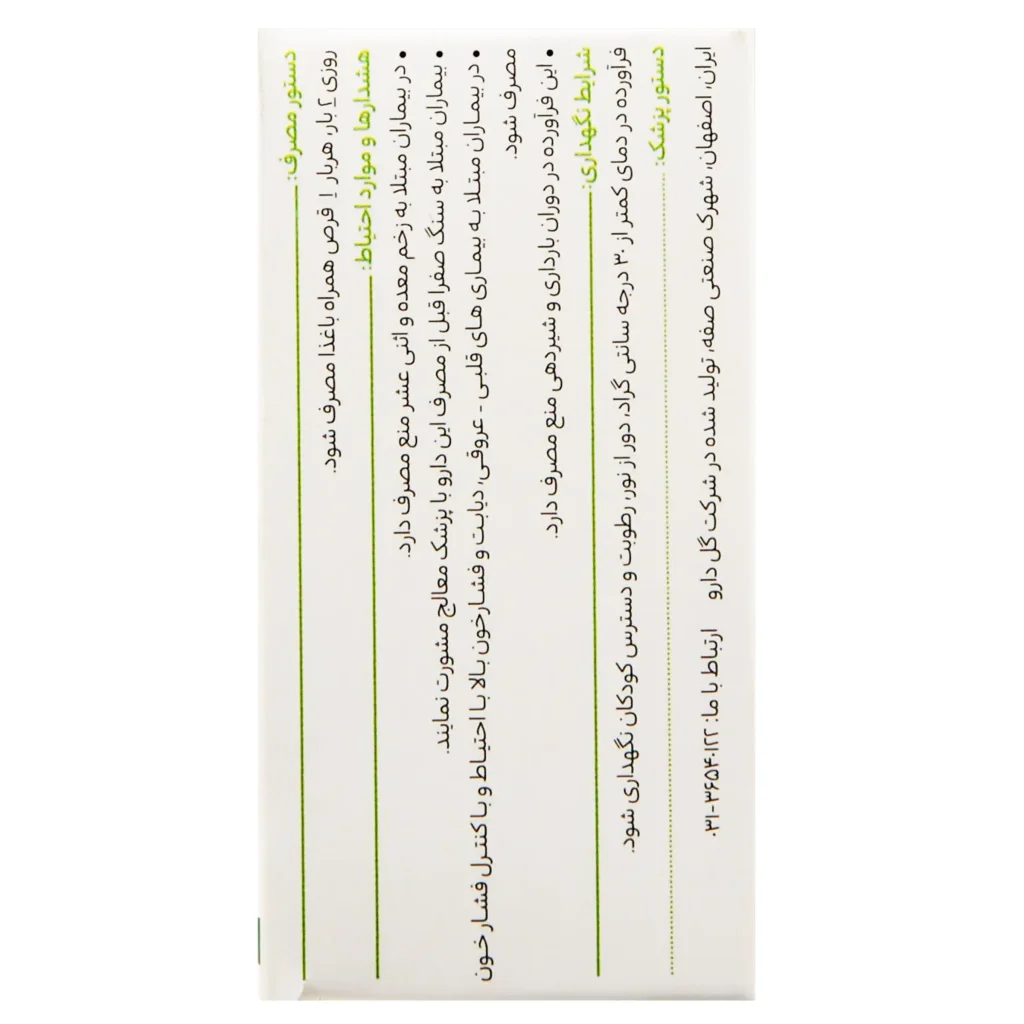 دستور مصرف:
روزی ۲ بار، هربار ۱ قرص همراه باغذا مصرف شود.
هشدارها و موارد احتیاط:
• در بیماران مبتلا به زخم معده و اثنی عشر منع مصرف دارد.
• بیماران مبتلا به سنگ صفرا قبل از مصرف این دارو با پزشک معالج مشورت نمایند.
• در بیماران مبتلا به بیماری های قلبی - عروقی، دیابت و فشارخون بالا با احتیاط و با کنترل فشار خون
مصرف شود.
• این فرآورده در دوران بارداری و شیردهی منع مصرف دارد.
شرایط نگهداری:
فرآورده در دمای کمتر از ۳۰ درجه سانتی گراد، دور از نور، رطوبت و دسترس کودکان نگهداری شود.
دستور پزشک:
ایران، اصفهان، شهرک صنعتی صفه، تولید شده در شرکت گل دارو ارتباط با ما: ۳۶۵۴۰۱۲۲-۰۳۱